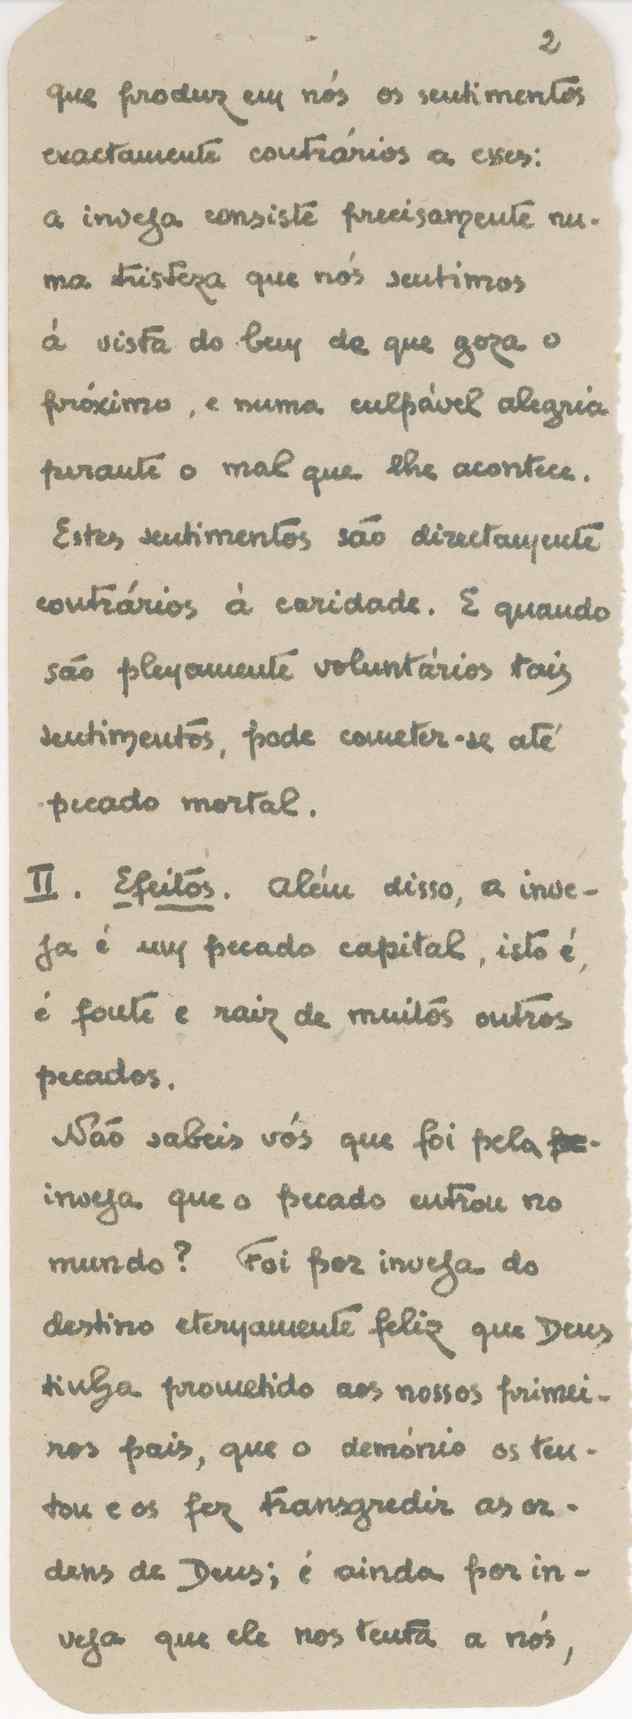 2
que produz em nós os sentimentos
exactamente contrários a esses:
a inveja consiste precisamente nu-
ma tristeza que nós sentimos
á vista do bem de que goza o
próximo, e numa culpável alegria
perante o mal que lhe acontece.
Estes sentimentos são directamente
contrários à caridade. E quando
são plenamente voluntários tais
sentimentos, pode cometer-se até
pecado mortal.
II. Efeitos. Além disso, a inve-
ja é um pecado capital, isto é,
é fonte e raiz de muitos outros
pecados.
Não sabeis vós que foi pela
inveja que o pecado entrou no
mundo? Foi por inveja do
destino eternamente feliz que Deus
tinha prometido aos nossos primei-
ros pais, que o demónio os ten-
tou e os fez transgredir as or-
dens de Deus; é ainda por in-
veja que ele nos tenta a nós,